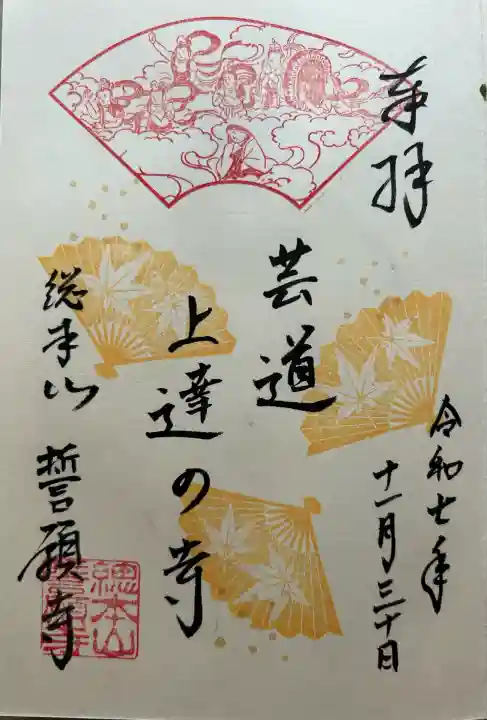 奉拝
令和七年
十一月三十日
芸道
上達の寺
総本山 誓願寺
總本山
誓願寺